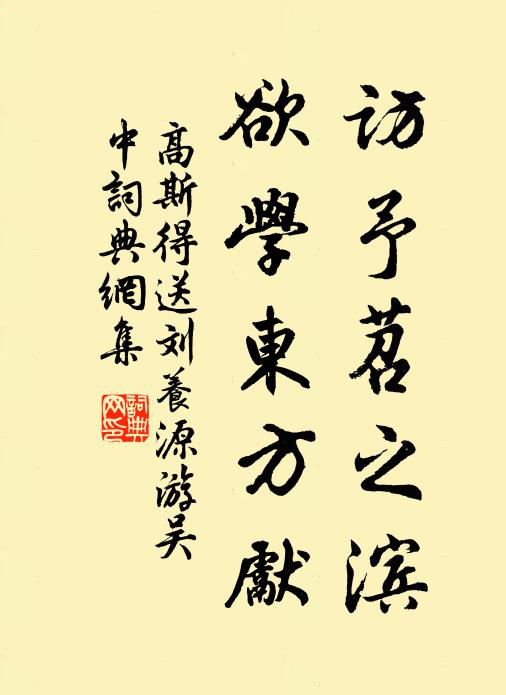 访予苕之滨
欲學東方獻
高斯得送刘養源游吴
中詞典網集
詞典网印